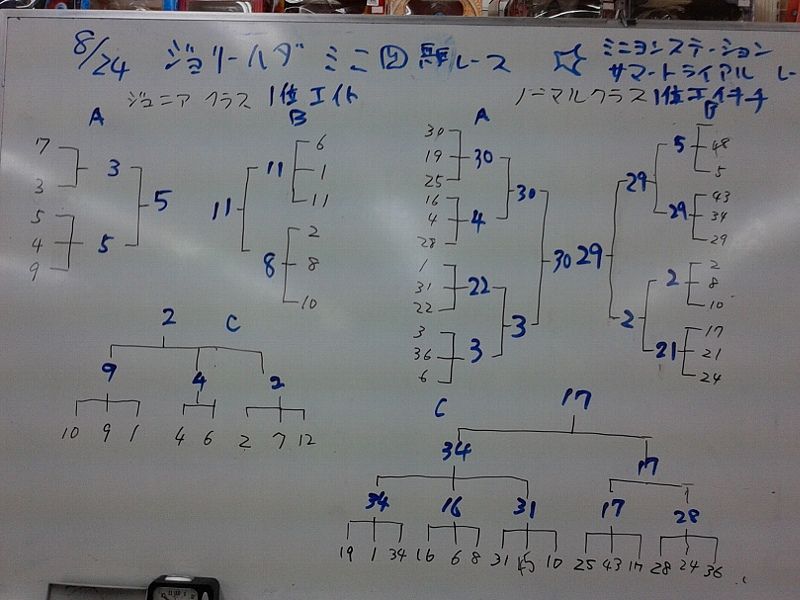 8/24 ジョリーハブ ミニ四駆レース ☆ ミニヨンステーション
サマートライアル レー
ジュニア クラス 1位エイト
ノーマルクラス 1位エイキチ
A B A B
7
3
3
5
4
9
5
5
11
11
6
1
11
8
2
8
10
30
19
25
30
16
4
28
4
30
1
31
22
22
3
36
6
3
3
30
29
29
5
48
5
29
43
34
29
2
2
8
10
2
21
17
21
24
2 C
9 4 2
10 9 1 4 6 2 7 12
C 17
34 17
34 16 31 17 28
19 1 34 16 6 8 31 15 10 25 43 17 28 24 36